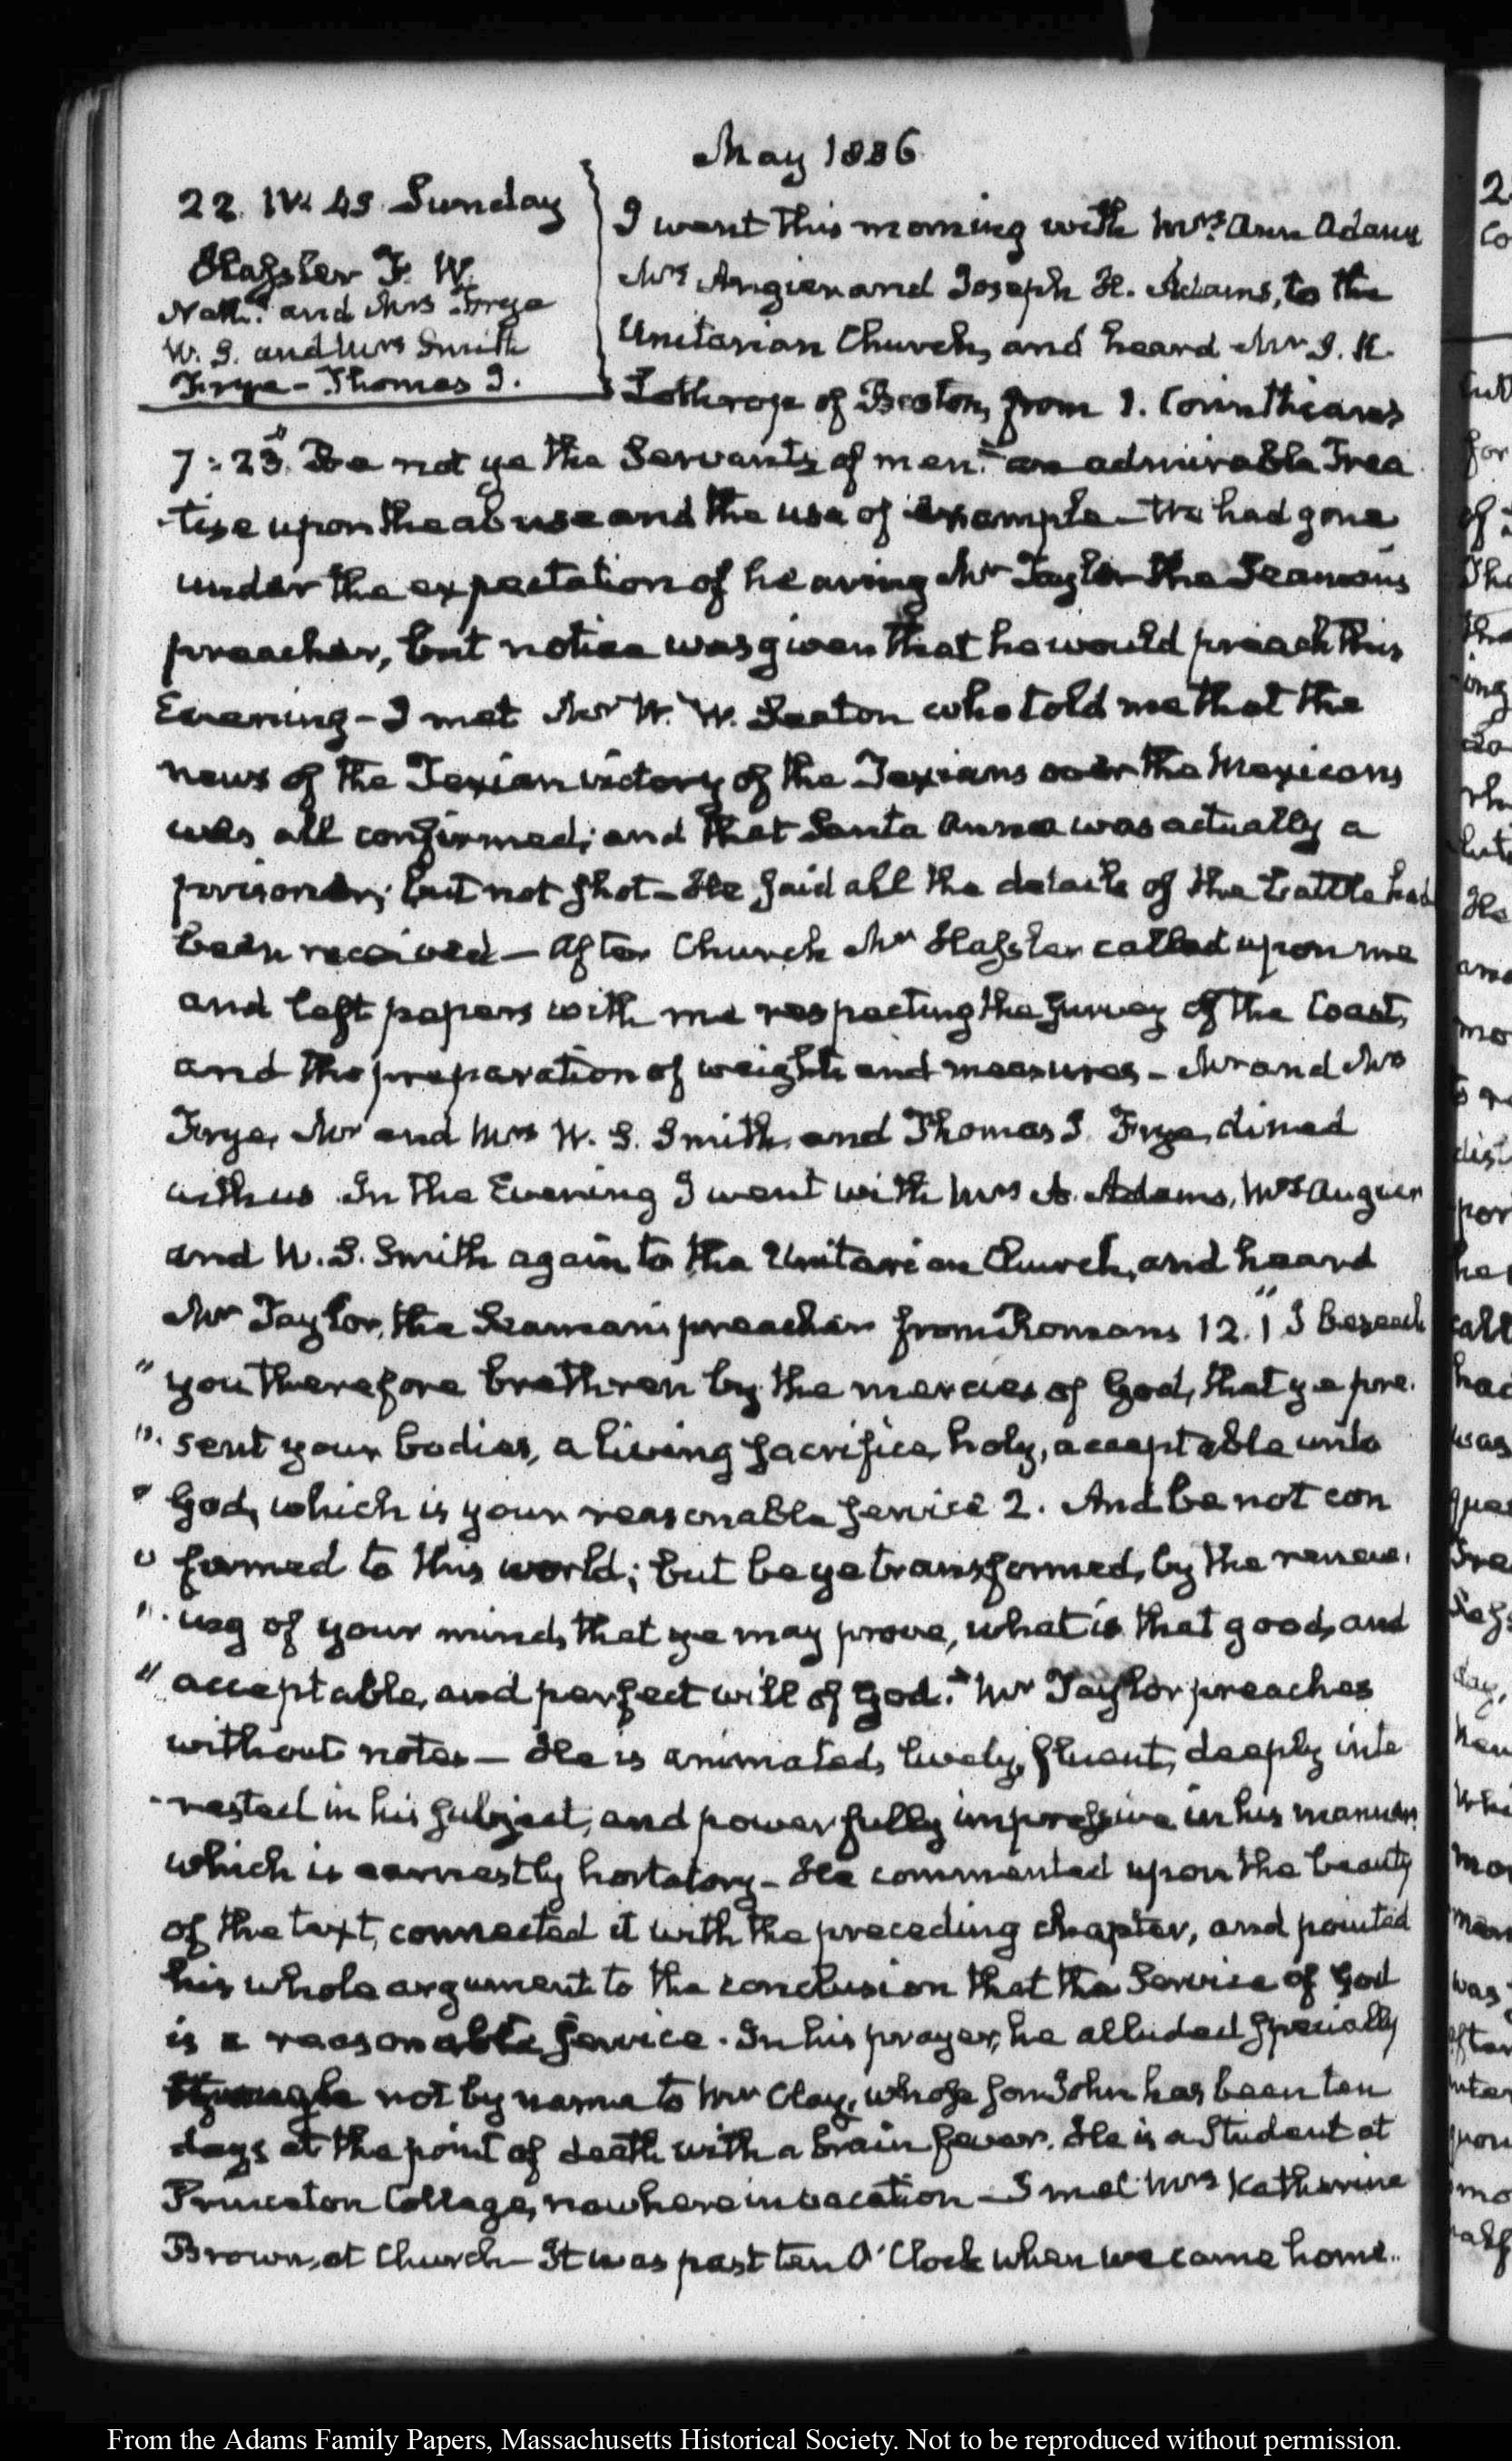 May 1836
22. IV:45 Sunday
Hassler F. W.
Nath.l and Mrs Frye
W. S. and Mrs Smith
Frye - Thomas J.
I went this morning with Mrs. Ann Adams
Mrs Angier and Joseph H. Adams, to the
Unitarian Church, and heard Mr S. K.
Lothrop of Boston, from 1. Corinthians
7:23. "Be not ye the Servants of men." an admirable Trea
-tise upon the abuse and the use of example - We had gone
under the expectation of hearing Mr Taylor the Seamans
preacher, but notice was given that he would preach this
Evening - I met Mr W. W. Seaton who told me that the
news of the Texian victory of the Texians over the Mexicans
was all confirmed; and that Santa Anna was actually a
prisoner; but not shot - He said all the details of the battle had
been received - After Church Mr Hassler called upon me
and left papers with me respecting the survey of the Coast,
and the preparation of weights and measures - Mr and Mrs
Frye, Mr and Mrs W. S. Smith, and Thomas J. Frye, dined
with us. In the Evening I went with Mrs A. Adams, Mrs Angier
and W. S. Smith again to the Unitarian Church, and heard
Mr Taylor, the Seamans preacher from Romans 12.1 "I beseech
" you therefore brethren by the mercies of God, that ye pre-
" sent your bodies, a living sacrifice, holy, acceptable unto
" God, which is your reasonable service 2. And be not con
" formed to this world; but be ye transformed, by the renew-
" ing of your mind, that ye may prove, what is that good, and
" acceptable, and perfect will of God." Mr Taylor preaches
without notes - He is animated, lively, fluent, deeply inte
-rested in his subject, and powerfully impressive in his manner
which is earnestly hortatory - He commented upon the beauty
of the text, connected it with the preceding chapter, and pointed
his whole argument to the conclusion that the Service of God
is a reasonable service. In his prayer, he alluded specially
not by name to Mr Clay, whose son John has been ten
days at the point of death with a brain fever. He is a Student at
Princeton College, now here in vacation - I met Mrs Katherine
Brown, at Church - It was past ten O'Clock when we came home.
From the Adams Family Papers, Massachusetts Historical Society. Not to be reproduced without permission.